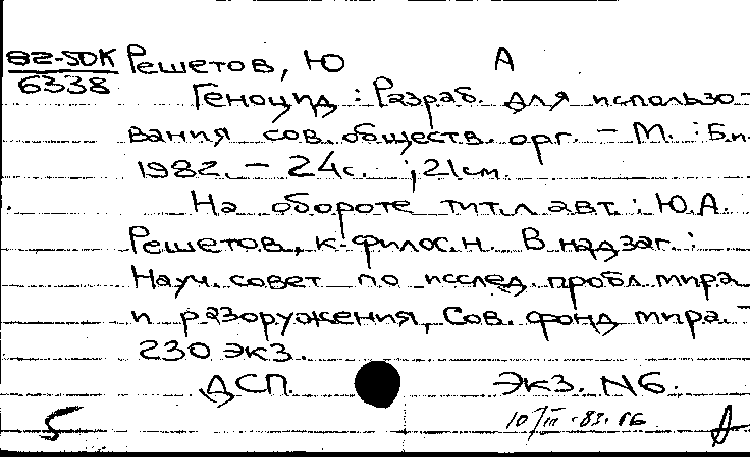 82-5DK Решетов, Ю А
6338
Геноцид : Разраб. для использо-
вания сов. обществ. орг. – М. : Б.и.
1982. – 24 с. ; 21 см.
На обороте тит. л. авт. : Ю.А.
Решетов, к. филос. н. В надзаг. :
Науч. совет по исслед. пробл. мира
и разоружения, Сов. фонд мира. –
230 экз.
ДСП. Экз. N6.
5 10/III-83.